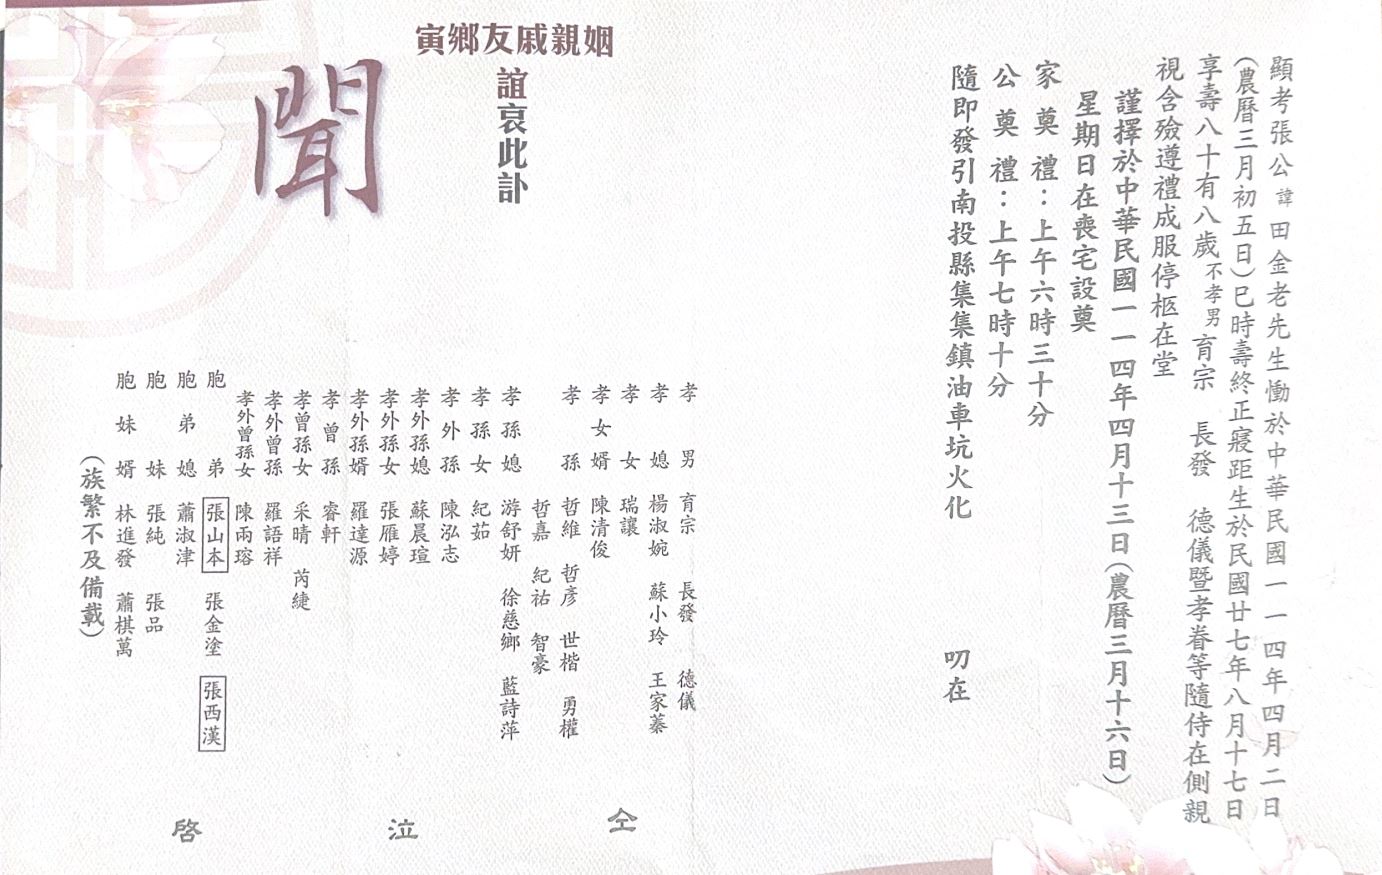 顯考張公諱田金老先生慟於中華民國一一四年四月二日
(農曆三月初五日)巳時壽終正寢距生於民國廿七年八月十七日
享壽八十有八歲不孝男育宗 長發 德儀暨孝眷等隨侍在側親
視含殮遵禮成服停柩在堂
謹擇於中華民國一一四年四月十三日(農曆三月十六日)
星期日在喪宅設奠
家奠禮：上午六時三十分
公奠禮：上午七時十分
隨即發引南投縣集集鎮油車坑火化
叨在
姻親戚友鄉寅
誼哀此訃
聞
孝男 育宗 長發 德儀
孝媳 楊淑婉 蘇小玲 王家蓁
孝女 瑞讓
孝女婿 陳清俊
孝孫 哲維 哲彦 世楷 勇權
哲嘉 紀祐 智豪
孝孫媳 游舒妍 徐慈鄉 藍詩萍
孝孫女 紀茹
孝外孫 陳泓志
孝外孫媳 蘇晨瑄
孝外孫女 張雁婷
孝外孫婿 羅達源
孝曾孫 睿軒
孝曾孫女 采晴 芮緁
孝外曾孫 羅語祥
孝外曾孫女 陳雨瑢
胞弟 張山本 張金塗 張西漢
胞弟媳 蕭淑津
胞妹 張純 張品
胞妹婿 林進發 蕭棋萬
(族繁不及備載)
仝 泣 啓